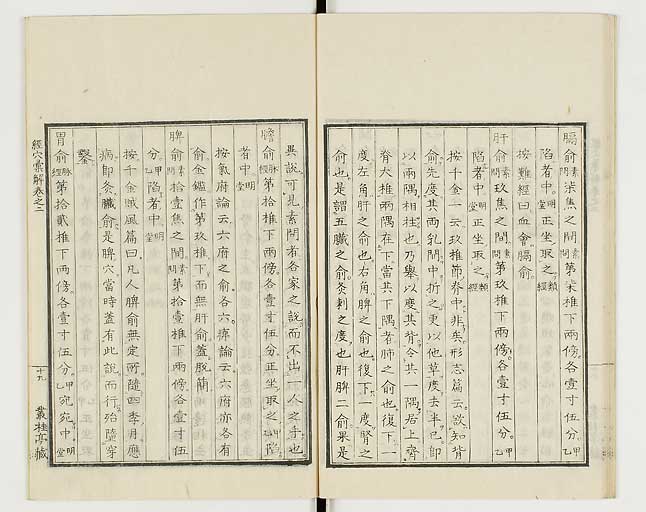 膈俞素問柒焦之間素問第柒椎下兩傍各壹寸伍分甲乙
陷者中明堂正坐取之類經
按難經曰血會膈俞
肝俞素問玖焦之間素問第玖椎下兩傍各壹寸伍分甲乙
陷者中明堂正坐取之類經
按千金一云玖椎節脊中非矣形志篇云欲知背
俞先度其兩乳間中折之更以他草度去半已即
以兩隅相柱也乃擧以度其背令其一隅居上齊
脊大椎兩隅在下當其下隅者肺之俞也復下一
度左角肝之俞也右角脾之俞也復下一度腎之
俞也是謂五臟之俞灸刺之度也肝脾二俞果是
異説可見素問者各家之説而不出一人之手也
膽俞脉經第拾椎下兩傍各壹寸伍分正坐取之甲乙陷
者中明堂
按氣府論云六府之俞各六痺論云六府亦各有
俞金鑑作第玖椎下而無肝俞蓋脱簡
脾俞素問拾壹焦之間素問第拾壹椎下兩傍各壹寸伍
分甲乙陷者中明堂
按千金賊風篇曰凡人脾俞無定所隨四季月應
病即灸臟俞是脾穴當時蓋有此説而行殆墮穿
鑿
胃俞脉經第拾貳椎下兩傍各壹寸伍分甲乙宛宛中明堂
經穴彙解卷之二
十九
叢桂亭藏